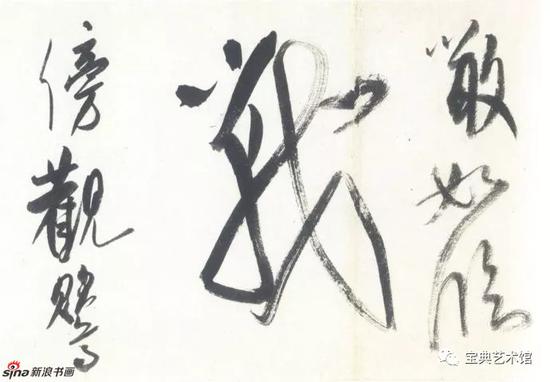 噉如臨
戰
傍觀鶩
sina新浪书画
宝典艺术馆